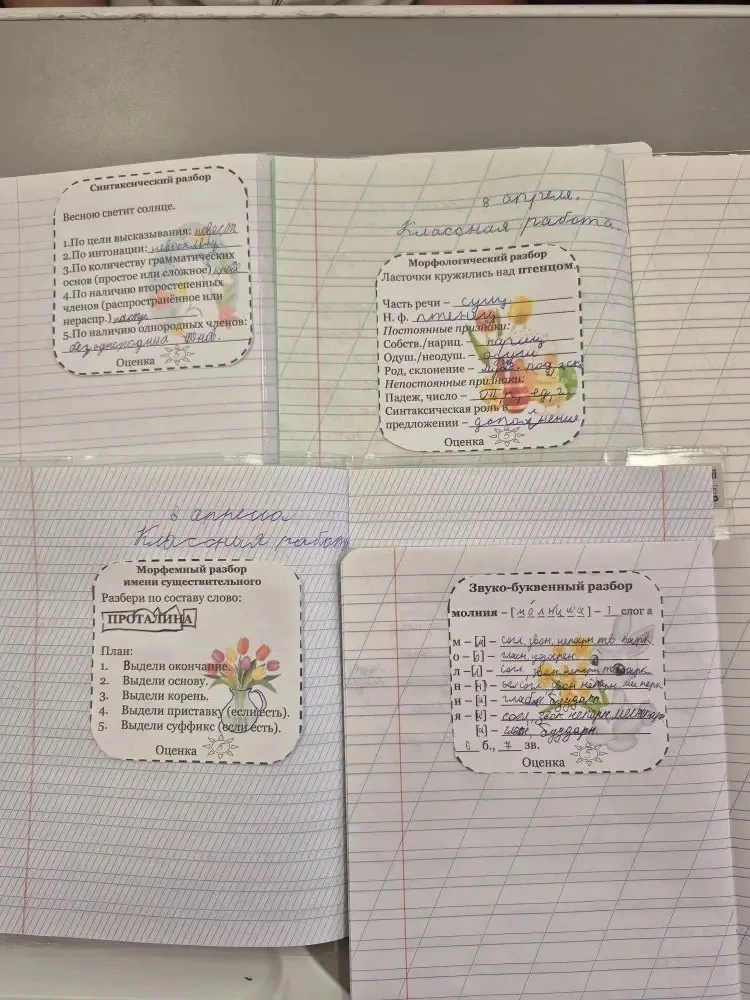 Синтаксический разбор
Весною светит солнце.
1.По цели высказывания: повест
2.По интонации: невосклиц.
3.По количеству грамматических
основ (простое или сложное)
4.По наличию второстепенных
членов (распространённое или
нераспр.) распр.
5.По наличию однородных членов:
без однородных членов.
Оценка 5
8 апреля.
Классная работа.
Морфологический разбор
Ласточки кружились над птенцом.
Часть речи – сущ.
Н. ф. птенец
Постоянные признаки:
Собств./нариц. – нариц
Одуш./неодуш. – одуш
Род, склонение – муж. под, скл
Непостоянные признаки:
Падеж, число – ТП п, ед, ч
Синтаксическая роль в
предложении – дополнение
Оценка 5
8 апреля
Классная работ
Морфемный разбор
имени существительного
Разбери по составу слово:
ПРОТАЛИНА
План:
1. Выдели окончание.
2. Выдели основу.
3. Выдели корень.
4. Выдели приставку (если есть).
5. Выдели суффикс (если есть).
Оценка 5
Звуко-буквенный разбор
молния – [мо́лний'а] – слог а
м – [м] – согл звон, непарн тв парн
о – [о] – глас ударн.
л – [л] – согл звон непарн тв парн
н – [н] – согл звон непарн мя парн
и – [и] – глас безударн
я – [й] – согл, звон непарн мягк
[а] – глас, безударн.
6 б., 7 зв.
Оценка 5